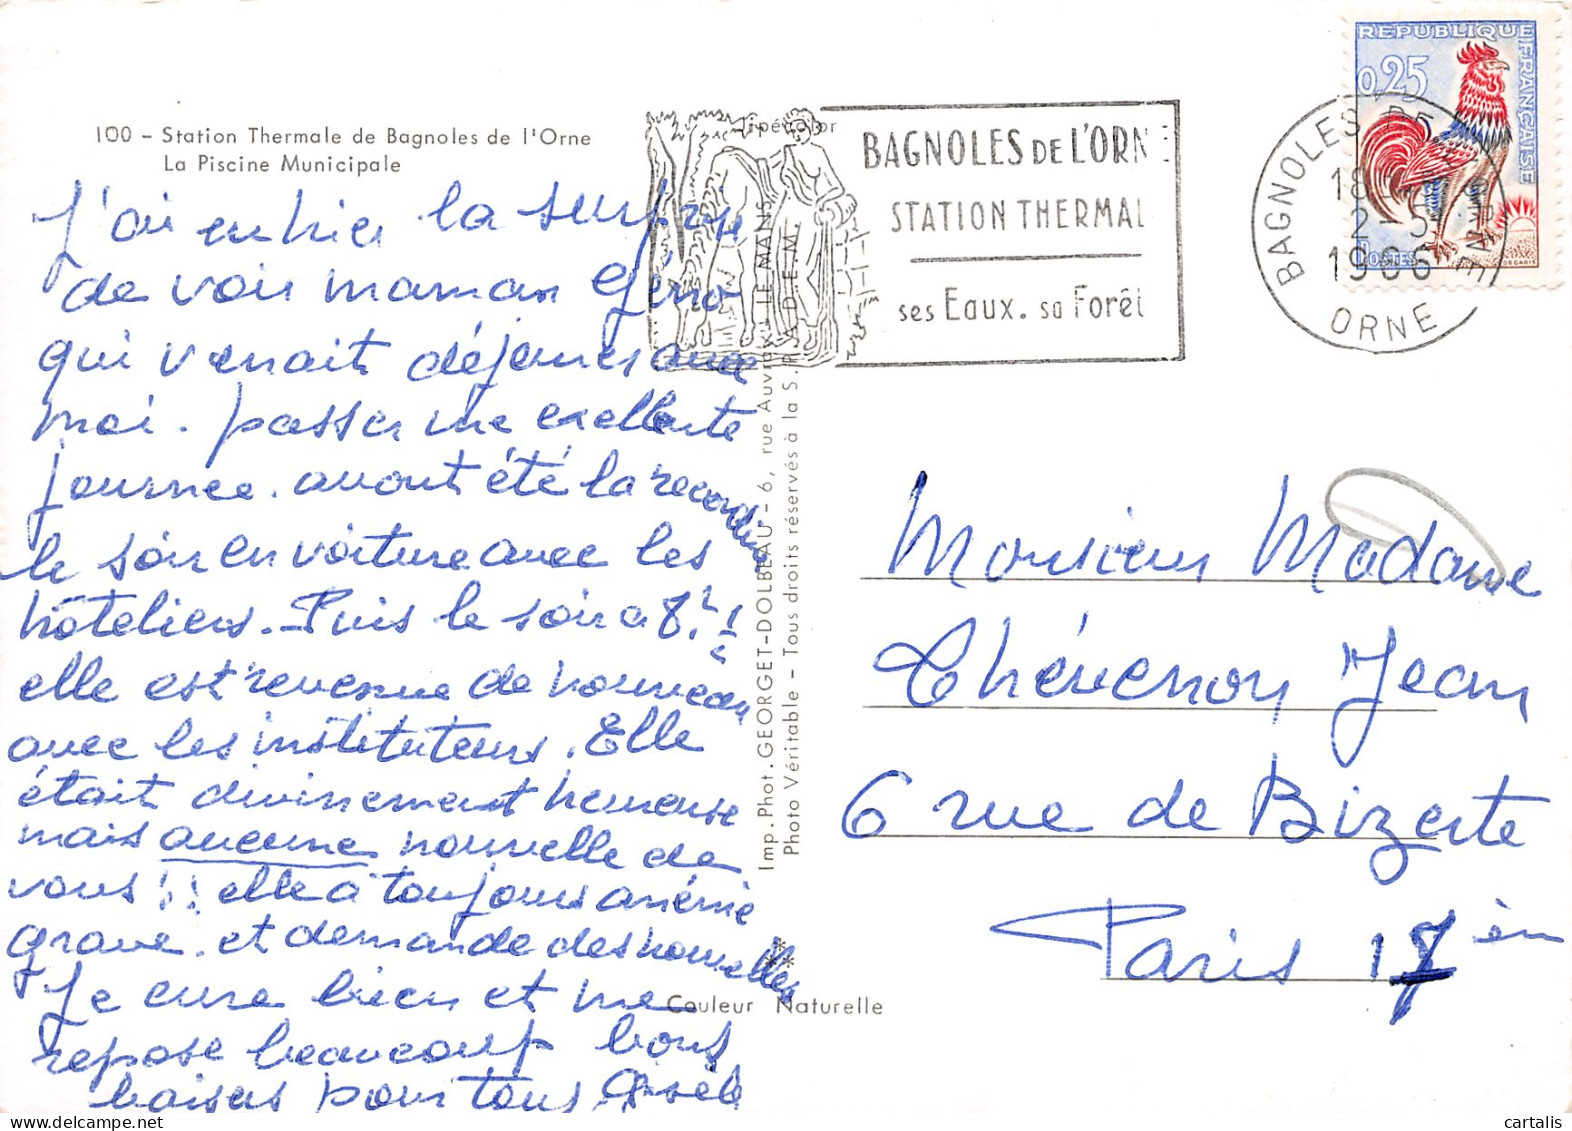 100 - Station Thermale de Bagnoles de l'Orne
La Piscine Municipale
J'ai eu hier la surprise
de voir maman Geno
qui venait déjeuner avec
moi. passer une excellente
journée. avont été la recondui
le soir en voiture avec les
hôteliers. Puis le soir a 8h. !
elle est revenue de nouveau
avec les instituteurs. Elle
était divinement heureuse
mais aucune nouvelle de
vous !! elle à toujours anémie
grave. et demande des nouvelles
Je cure bien et me
repose beaucoup bons
baisers pour tous Gisèle
Imp. Phot. GEORGET-DOLBEAU - 6, rue Auvray LE MANS
Photo Véritable - Tous droits réservés à la S.P.A.D.E.M.
Couleur Naturelle
BAGNOLES DE L'ORNE
STATION THERMAL
ses Eaux. sa Forêt
BAGNOLES DE L'ORNE
18
2 - 5
1966
ORNE
REPUBLIQUE FRANÇAISE
0,25
POSTES
DECARIS
Monsieur Madame
Chévenon Jean
6 rue de Bizerte
Paris 17 èm
cartalis